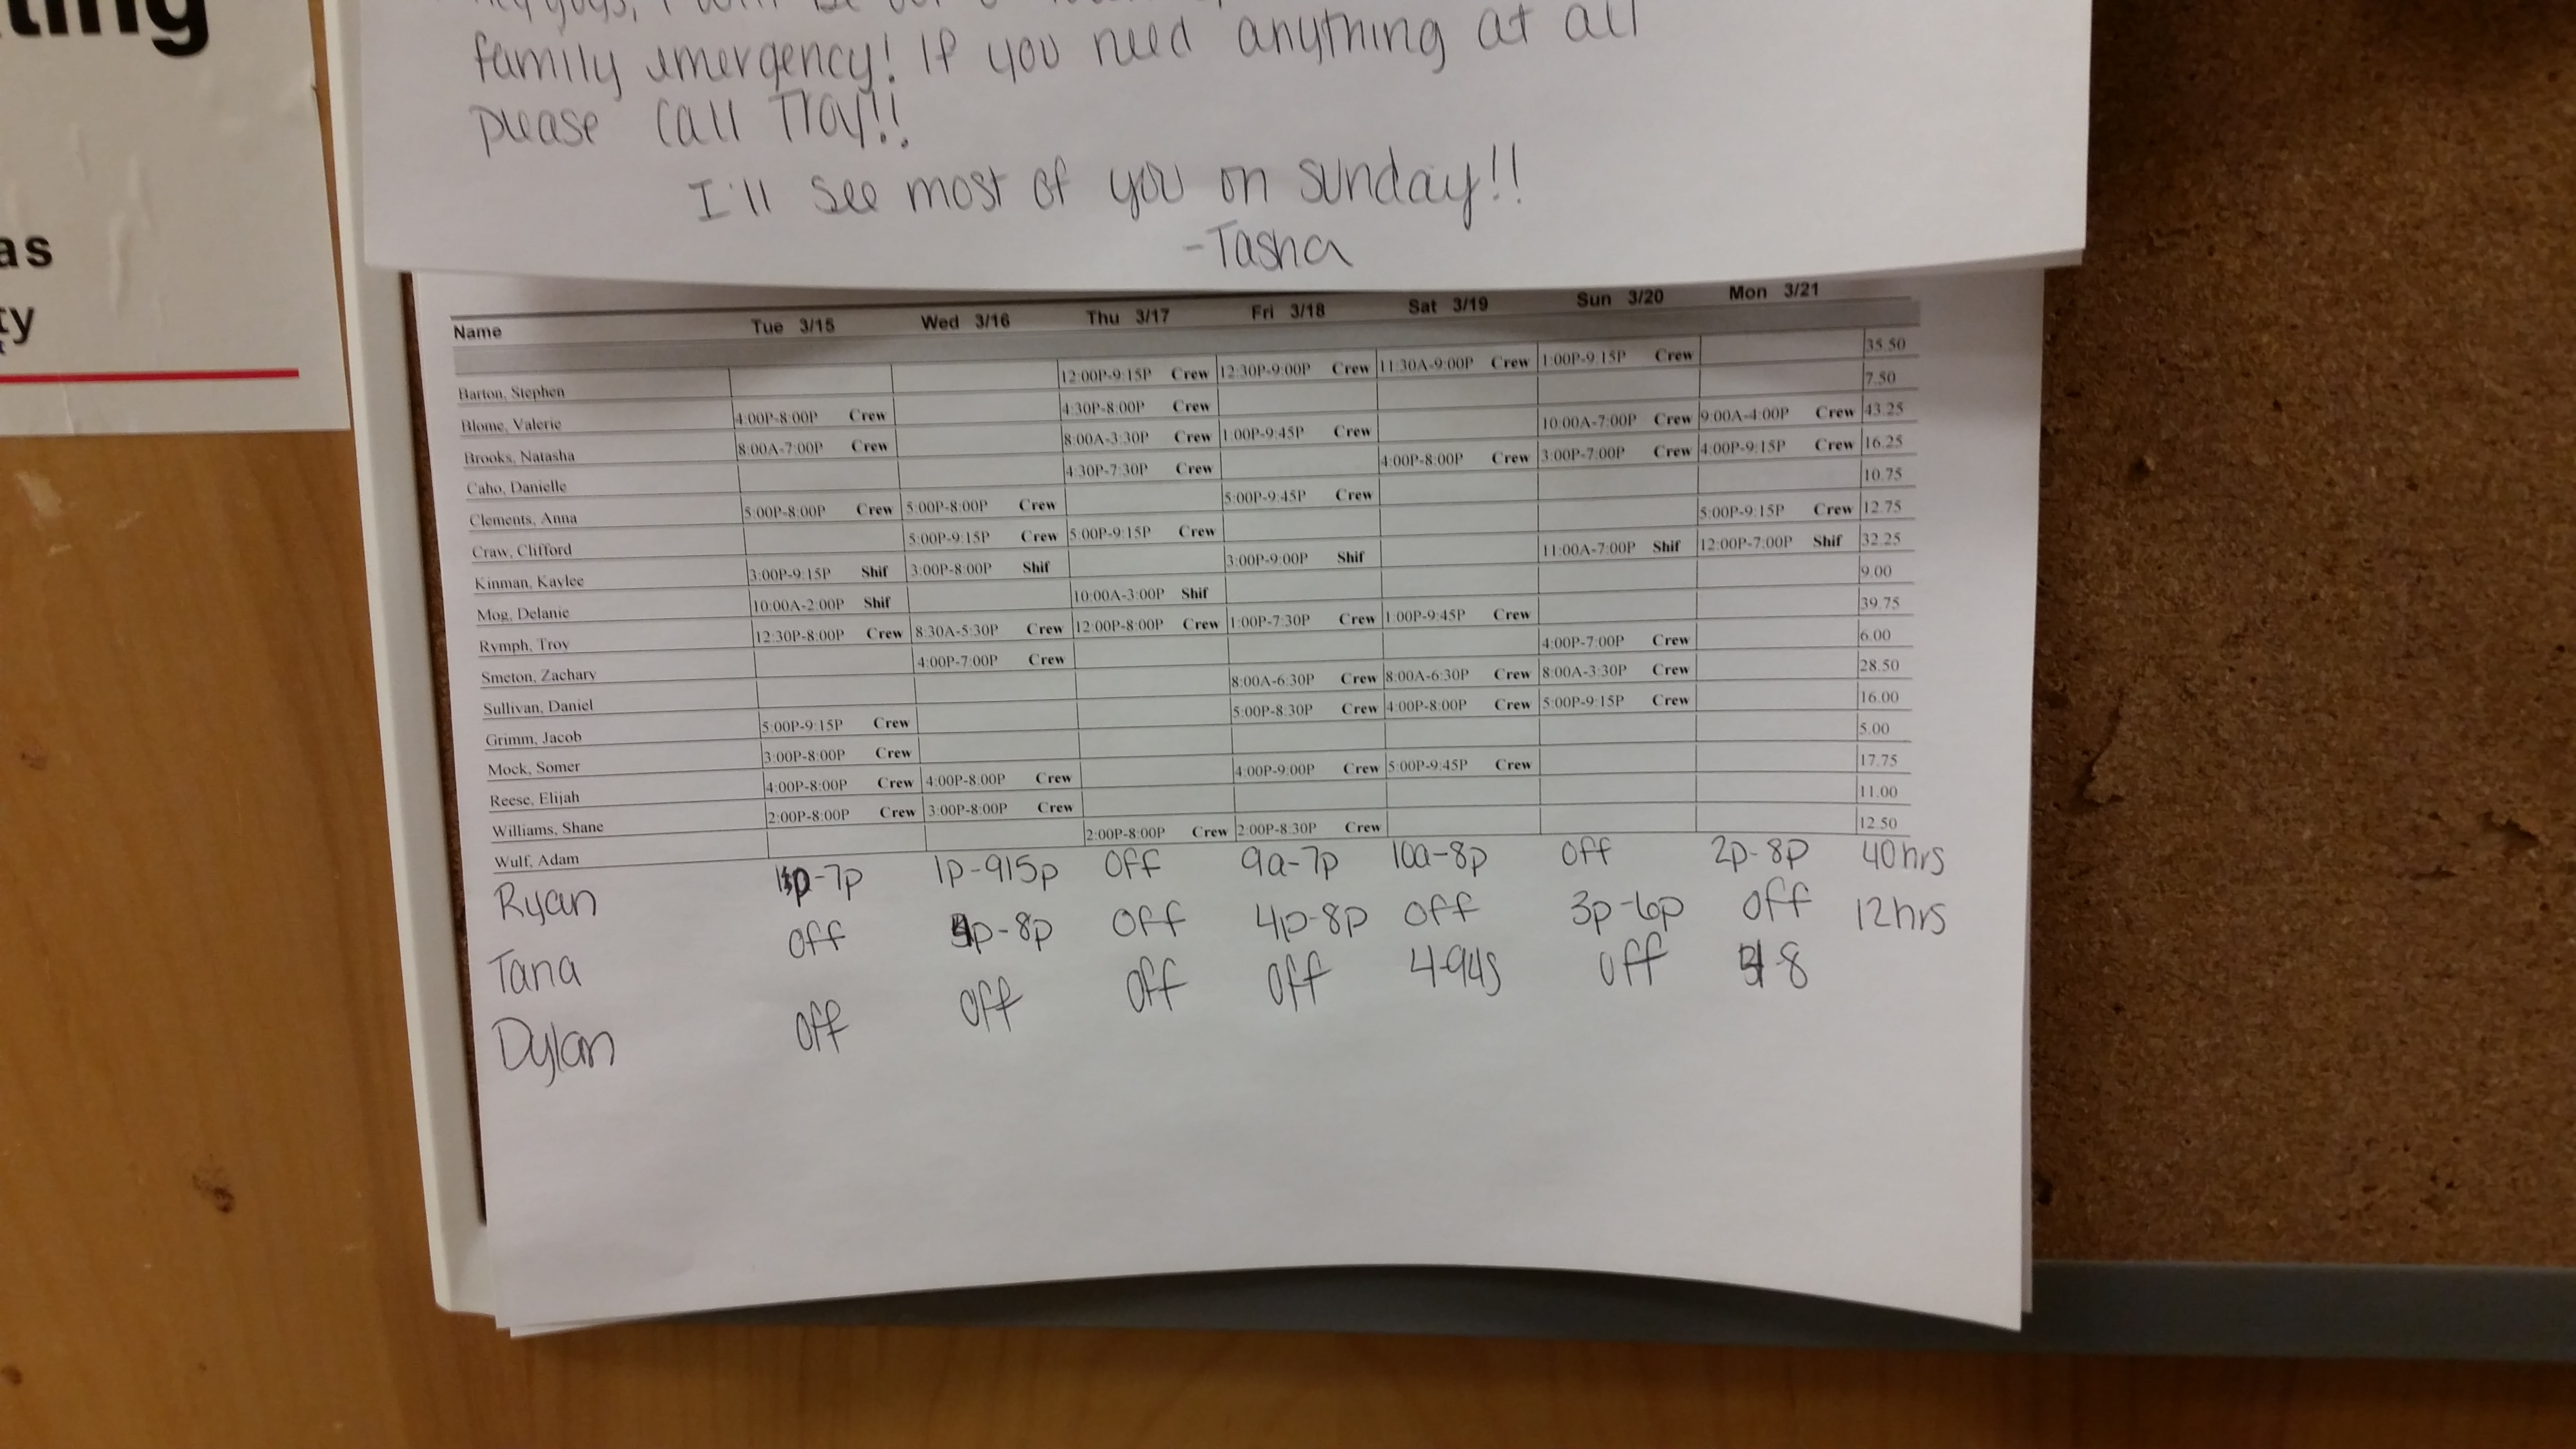 ting
as
ty
family emergency! If you need anything at all
please call Troy!!
I'll see most of you on Sunday!!
-Tasha
Name Tue 3/15 Wed 3/16 Thu 3/17 Fri 3/18 Sat 3/19 Sun 3/20 Mon 3/21
Barton, Stephen 12:00P-9:15P Crew 12:30P-9:00P Crew 11:30A-9:00P Crew 1:00P-9:15P Crew 35.50
Blome, Valerie 4:00P-8:00P Crew 4:30P-8:00P Crew 7.50
Brooks, Natasha 8:00A-7:00P Crew 8:00A-3:30P Crew 1:00P-9:45P Crew 10:00A-7:00P Crew 9:00A-4:00P Crew 43.25
Caho, Danielle 4:30P-7:30P Crew 4:00P-8:00P Crew 3:00P-7:00P Crew 4:00P-9:15P Crew 16.25
Clements, Anna 5:00P-8:00P Crew 5:00P-8:00P Crew 5:00P-9:45P Crew 10.75
Craw, Clifford 5:00P-9:15P Crew 5:00P-9:15P Crew 5:00P-9:15P Crew 12.75
Kinman, Kaylee 3:00P-9:15P Shif 3:00P-8:00P Shif 3:00P-9:00P Shif 11:00A-7:00P Shif 12:00P-7:00P Shif 32.25
Mog, Delanie 10:00A-2:00P Shif 10:00A-3:00P Shif 9.00
Rymph, Troy 12:30P-8:00P Crew 8:30A-5:30P Crew 12:00P-8:00P Crew 1:00P-7:30P Crew 1:00P-9:45P Crew 39.75
Smeton, Zachary 4:00P-7:00P Crew 4:00P-7:00P Crew 6.00
Sullivan, Daniel 8:00A-6:30P Crew 8:00A-6:30P Crew 8:00A-3:30P Crew 28.50
Grimm, Jacob 5:00P-9:15P Crew 5:00P-8:30P Crew 4:00P-8:00P Crew 5:00P-9:15P Crew 16.00
Mock, Somer 3:00P-8:00P Crew 5.00
Reese, Elijah 4:00P-8:00P Crew 4:00P-8:00P Crew 4:00P-9:00P Crew 5:00P-9:45P Crew 17.75
Williams, Shane 2:00P-8:00P Crew 3:00P-8:00P Crew 11.00
Wulf, Adam 2:00P-8:00P Crew 2:00P-8:30P Crew 12.50
Ryan -7p 1p-915p Off 9a-7p 10a-8p Off 2p-8p 40hrs
Tana Off p-8p Off 4p-8p Off 3p-6p Off 12hrs
Dylan Off Off Off Off 4-945 Off -8